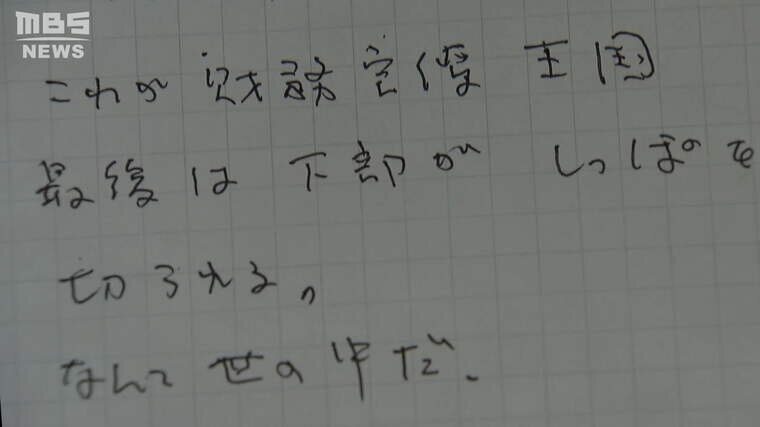 MBS
NEWS
これが財務官僚王国
最後は下部がしっぽを
切られる。
なんて世の中だ。